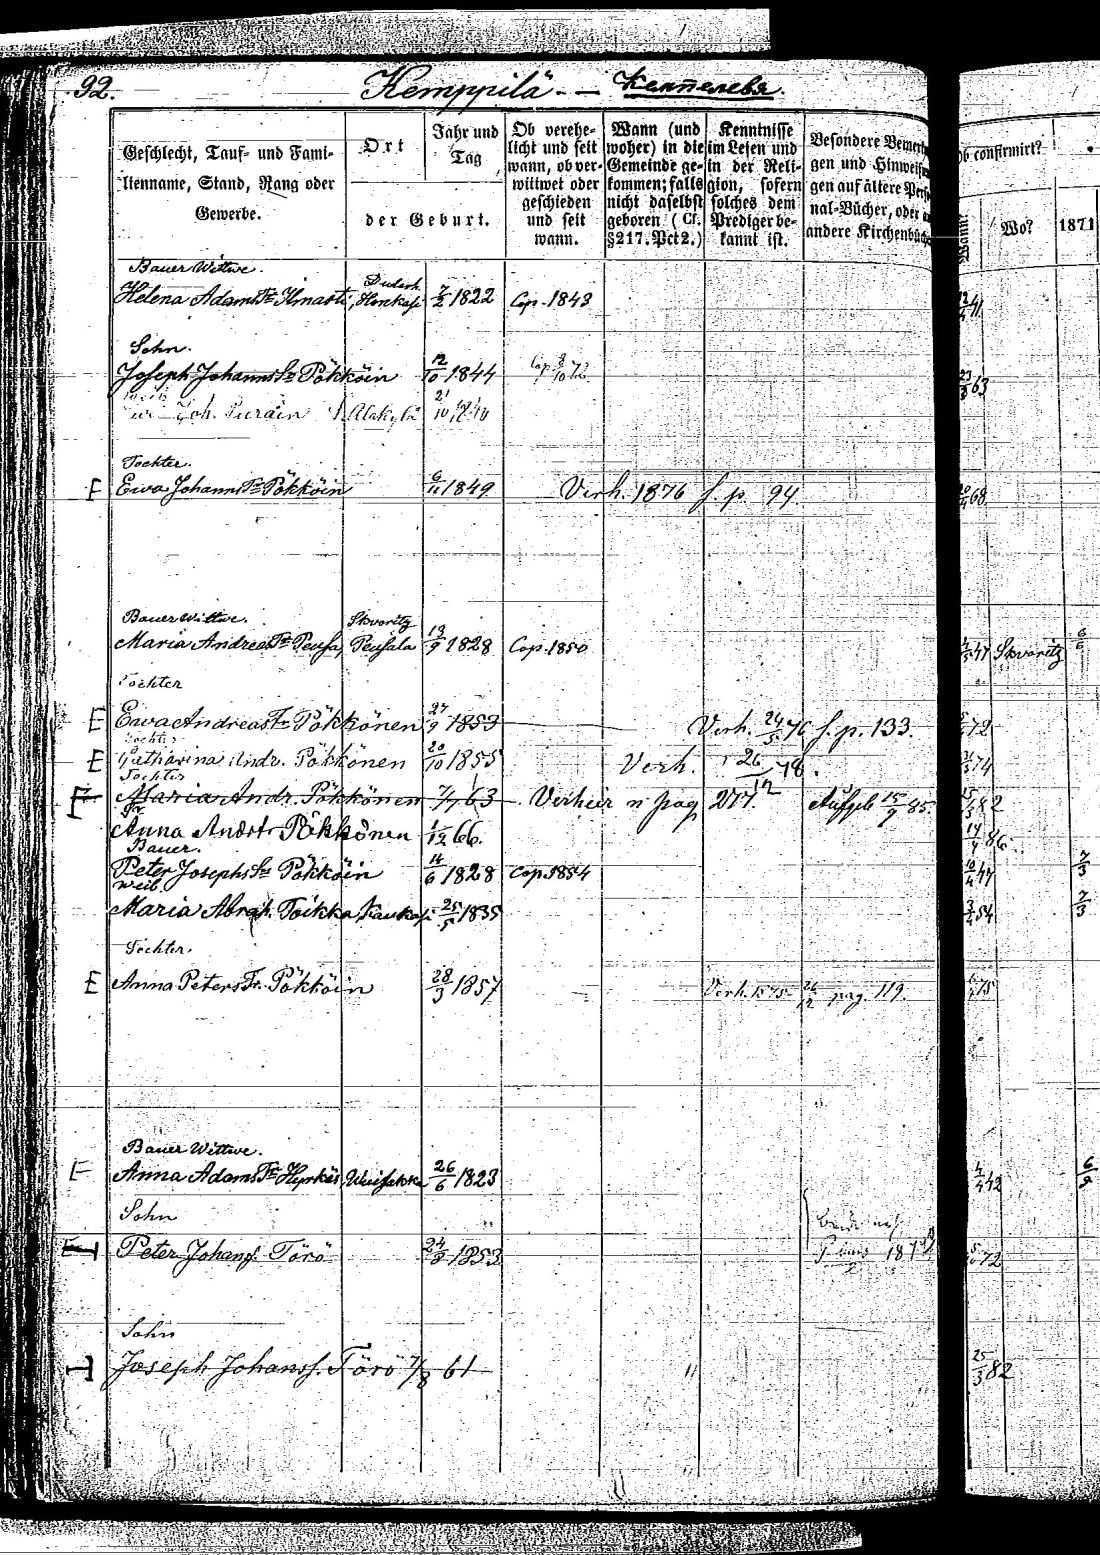 92. Kemppilä - — Кемпелевя.
Geschlecht, Tauf- und Fami-
lienname, Stand, Rang oder
Gewerbe.
Ort
Jahr und
Tag
der Geburt.
Ob verehe-
licht und seit
wann, ob ver-
wittwet oder
geschieden
und seit
wann.
Wann (und
woher) in die
Gemeinde ge-
kommen; falls
nicht daselbst
geboren (Cf.
§217. Pct2.)
Kenntnisse
im Lesen und
in der Reli-
gion, sofern
solches dem
Prediger be-
kannt ist.
Besondere Bemerk
gen und Hinweise
gen auf ältere Pers
nal-Bücher, oder
andere Kirchenbüch
Ob confirmirt?
Wann? Wo? 1871
Bauer Wittwe.
Helena Adams Tr Ilmast, Honkas 7/2 1822 Cop. 1843
Sohn.
Joseph Johanns Sn Pökköin 12/10 1844 Cop. 8/10 72 23/3 63
Joh. Purain Alakylä
Tochter.
E Ewa Johanns Tr Pökköin 6/11 1849 Verh. 1876 f. p. 94 68
Bauer Wittwe. Skworitz
Maria Andreas Tr Peusa, Peusala 13/9 1828 Cop. 1850 47 Skworitz 6/6
Tochter
E Ewa Andreas Tr Pökkönen 27/9 1853 Verh. 24/5 76 f. p. 133. 72
Tochter
E Catharina Andr. Pökkönen 20/10 1855 Verh. 26/12 78. 74
Tochter
E Maria Andr. Pökkönen 7/1 63 Verheir n pag 277. Aufgeb 15/9 85. 15/3 82
Tr
Anna Andr Tr Pökkönen 1/12 66. 86
Bauer.
Peter Josephs Sn Pökköin 14/6 1828 Cop. 1854 10/4 47 7/3
Weib.
Maria Abrah. Toikka, Kaukas 25/5 1835 3/4 54 7/3
Tochter.
E Anna Peters Tr. Pökköin 28/3 1857 Verh. 1875 26/12 pag. 119. 75
Bauer Wittwe.
E Anna Adams Tr Hyrkäs, 26/6 1823 4/4 42 6/9
Sohn
Peter Johanss. Törö 24/8 1853 72
Sohn
Joseph Johanss. Törö 7/8 61 " 25/3 82